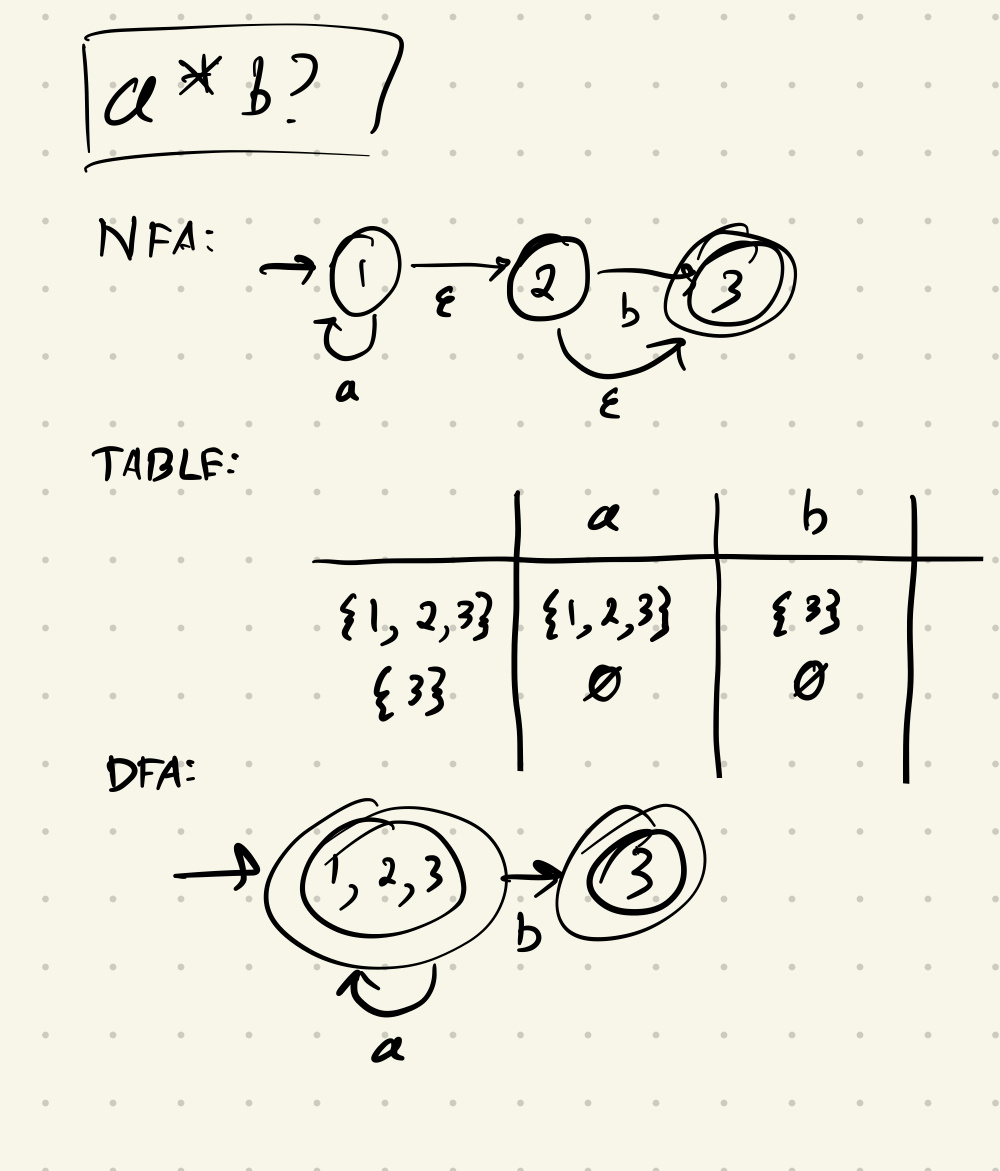 a*b?
NFA:
1 ε 2 b 3
a ε
TABLE:
a b
{1, 2,3} {1,2,3} {3}
{3} Ø Ø
DFA:
1, 2,3 b 3
a